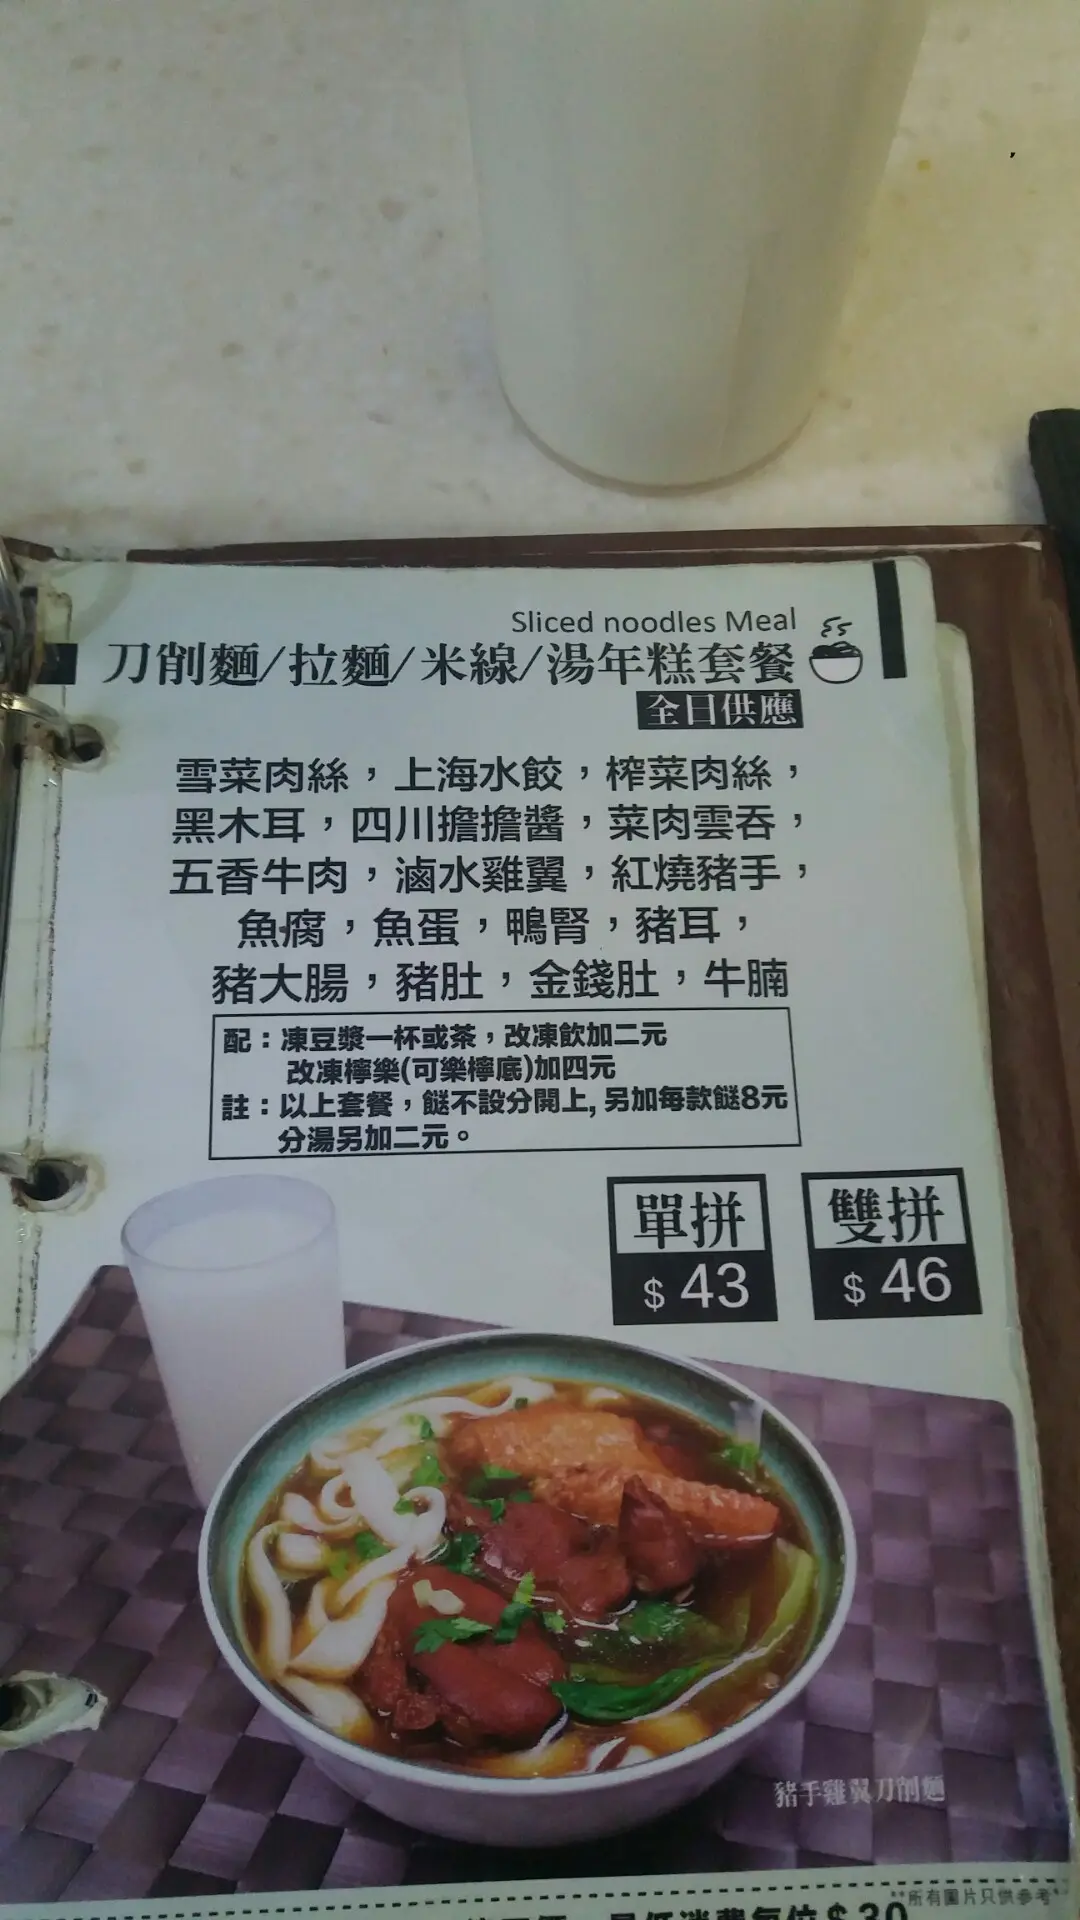 Sliced noodles Meal
刀削麵/拉麵/米線/湯年糕套餐
全日供應
雪菜肉絲，上海水餃，榨菜肉絲，
黑木耳，四川擔擔醬，菜肉雲吞，
五香牛肉，滷水雞翼，紅燒豬手，
魚腐，魚蛋，鴨腎，豬耳，
豬大腸，豬肚，金錢肚，牛腩
配：凍豆漿一杯或茶，改凍飲加二元
改凍檸樂(可樂檸底)加四元
註：以上套餐，餸不設分開上, 另加每款餸8元
分湯另加二元。
單拼 雙拼
$ 43 $ 46
豬手雞翼刀削麵
**所有圖片只供參考**
最低消費每位$30